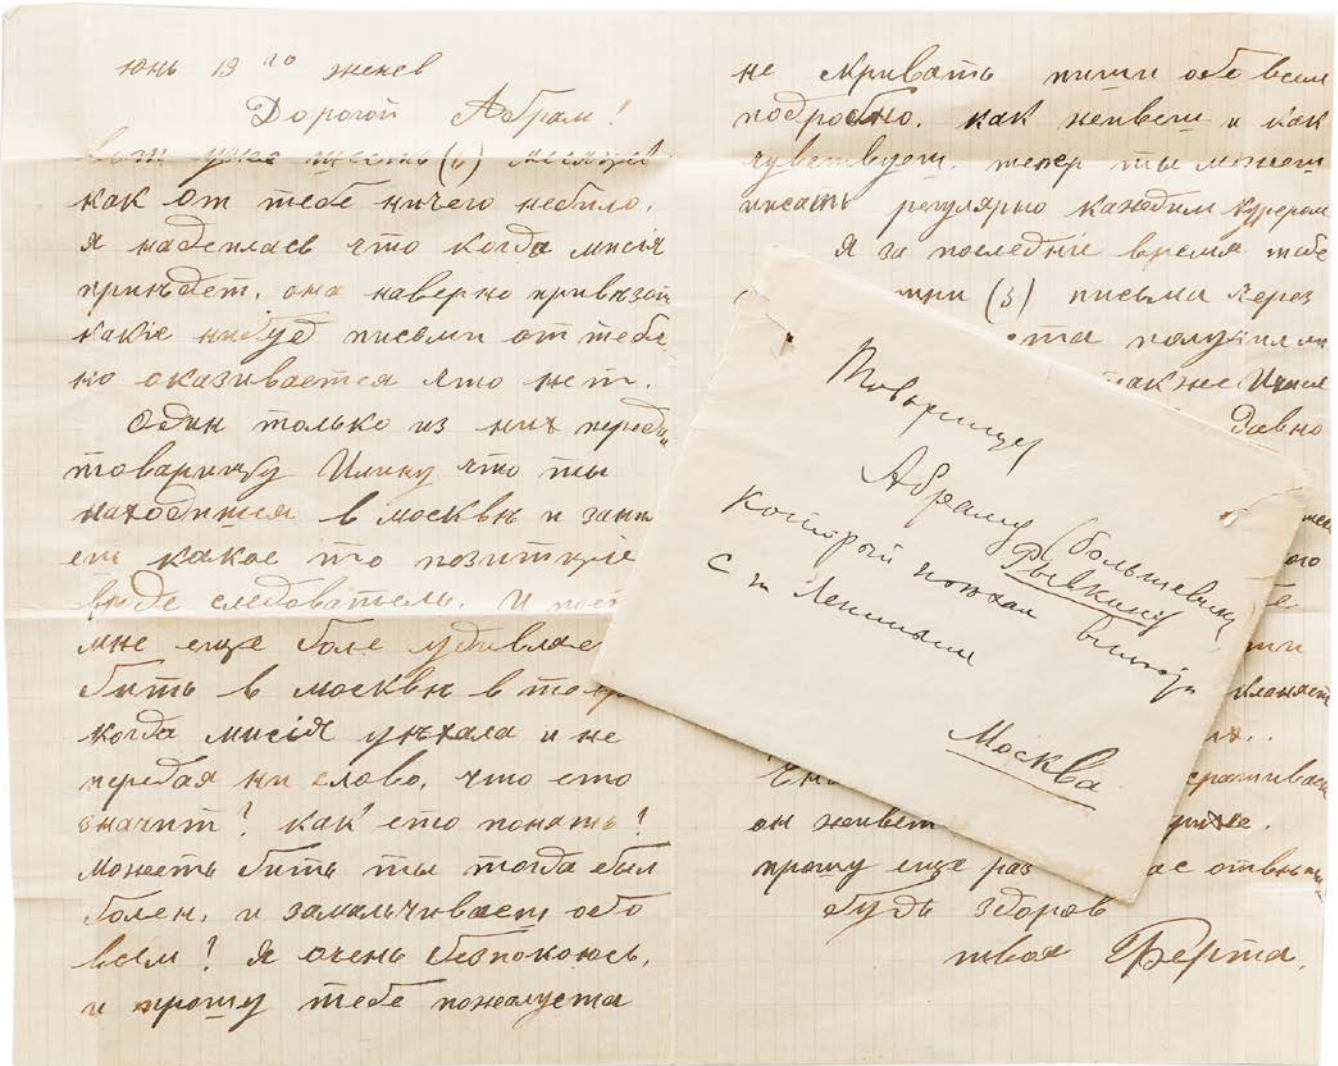 юнь 19 го женев
Дорогой Абрам!
Вот уже шесть (6) месяцев
как от тебе ничего небило.
я наделась что когда мисія
принъдет, она наверно привъзаи
какіе нибуд писми от тебе
но оказивается что нет.
Один только из них передал
товарищу Илину что ты
находишся в москвъ и зани
еш какое то позитціе
вроде следователь. И
мне еще боле удивляе
бить в москвъ в то
когда мисія уъхала и не
передая ни слово, что ето
значит? Как ето понять?
можеть бить ты тогда был
болен, и замальчиваеш обо
всем! Я очень безпокоюсь,
и прошу тебе пожалуста
не скривать пиши обо всем
подробно. как живеш и как
чувствуеш. тепер ты можеш
писать регулярно каждим курером
Я за последніе время тебе
три (3) письма через
получил ли
также Илия
давно
кланяет
спрашивает
он живет
прошу еще раз отвъть
будь здоров
твоя Берта.
Товарищу
Абраму Рывкину
(большевик
который поъхал
с т Лениным
Москва